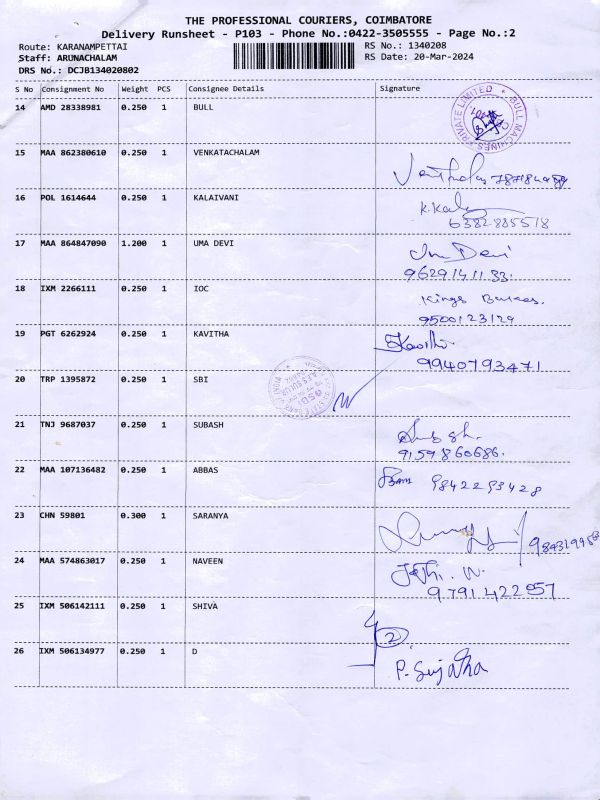 THE PROFESSIONAL COURIERS, COIMBATORE
Delivery Runsheet - P103 - Phone No.:0422-3505555 - Page No.:2
Route: KARANAMPETTAI RS No.: 1340208
Staff: ARUNACHALAM RS Date: 20-Mar-2024
DRS No.: DCJB134020802
S No Consignment No Weight PCS Consignee Details Signature
14 AMD 28338981 0.250 1 BULL
BULL MACHINES PRIVATE LIMITED
15 MAA 862380610 0.250 1 VENKATACHALAM
16 POL 1614644 0.250 1 KALAIVANI K.Kal
6382885518
17 MAA 864847090 1.200 1 UMA DEVI Um Devi
9629141133.
18 IXM 2266111 0.250 1 IOC Kings
9500123129
19 PGT 6262924 0.250 1 KAVITHA Kavitha
9940793471
20 TRP 1395872 0.250 1 SBI
21 TNJ 9687037 0.250 1 SUBASH
9159860686.
22 MAA 107136482 0.250 1 ABBAS 9842293428
23 CHN 59801 0.300 1 SARANYA
24 MAA 574863017 0.250 1 NAVEEN
9791422057
25 IXM 506142111 0.250 1 SHIVA 2
26 IXM 506134977 0.250 1 D P. Sujatha